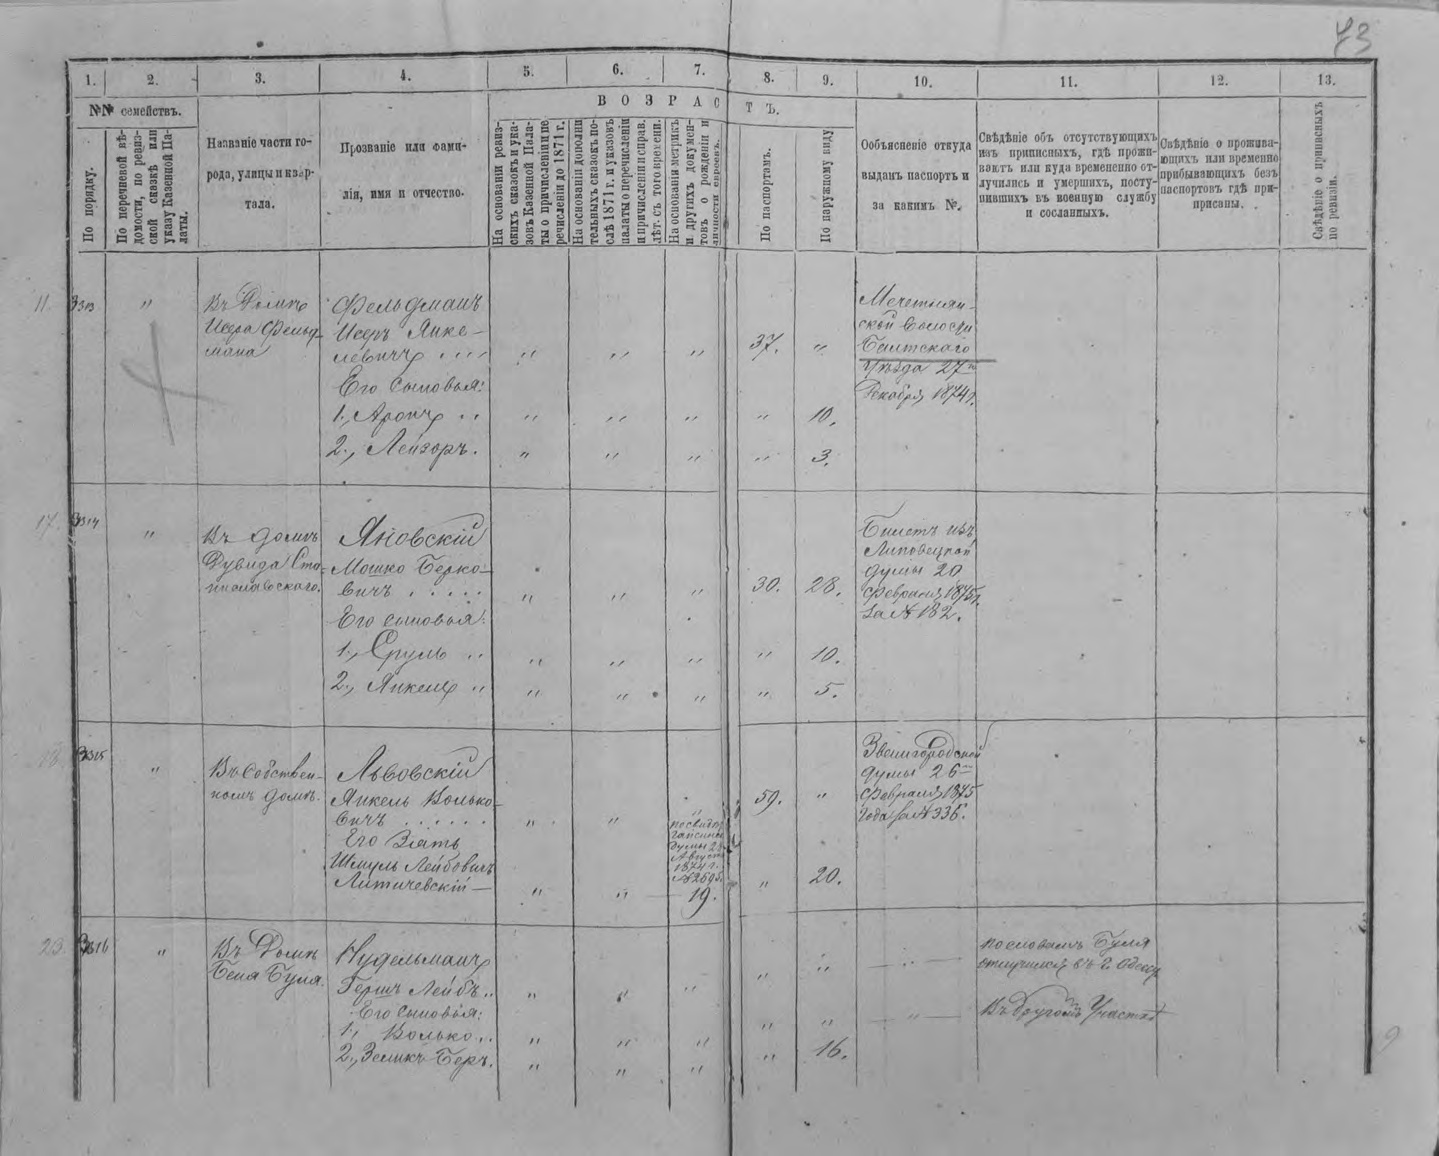 73
1. 2. 3. 4. 5. 6. 7. 8. 9. 10. 11. 12. 13.
№№ семействъ.
По порядку.
По перечневой вѣ-
домости, по ревиз-
ской сказкѣ или
указу Казенной Па-
латы.
Названіе части го-
рода, улицы и квар-
тала.
Прозваніе или фами-
лія, имя и отчество.
ВОЗРАСТЪ.
На основаніи ревиз-
скихъ сказокъ и ука-
зовъ Казенной Пала-
ты о причисленіи и пе
речисленіи до 1871 г.
На основаніи дополни
тельныхъ сказокъ по-
слѣ 1871 г. и указовъ
палаты о перечисленіи
и причисленіи и справ.
лѣт. съ того времени.
На основаніи метрикъ
и другихъ докумен-
товъ о рожденіи и
личности евреевъ.
По паспортамъ.
По наружному виду
Объясненіе откуда
выданъ паспортъ и
за какимъ №.
Свѣдѣніе объ отсутствующихъ
изъ приписныхъ, гдѣ прожи-
ваютъ или куда временно от-
лучились и умершихъ, посту-
пившихъ въ военную службу
и сосланныхъ.
Свѣдѣніе о прожива-
ющихъ или временно
прибывающихъ безъ
паспортовъ гдѣ при-
писаны.
Свѣдѣніе о приписныхъ
по ревизіи.
11. 3313 " Въ Домѣ
Исера Фельд-
мана
Фельдманъ
Исеръ Янке-
левичъ . . . . " " " 37. "
Его сыновья:
1., Аронъ . . " " " " 10.
2., Лейзоръ. " " " " 3.
ской Волости
Балтскаго
Уѣзда 27го
Декабря 1874 г.
17. 3314 " Въ домѣ
Дувида Ста-
ниславскаго.
Яновскій
Мошко Берко-
вичъ . . . . . " " " 30. 28.
Его сыновья:
1., Сруль . . " " " " 10.
2., Янкель " " " " " 5.
Билетъ изъ
Липовецкой
думы 20
Февраля 1875 г.
за № 182.
18. 3315 " Въ собствен-
номъ домѣ.
Львовскій
Янкель Волько-
вичъ . . . . . . " " " 59. "
Его Зять
Шмуль Лейбовичъ
Литичевскій — " " 19. " 20.
думы 2
Август
1874 г.
№ 2695.
Звенигородской
думы 26го
Февраля 1875
года за № 336.
23. 3316 " Въ Домѣ
Беня Буля.
Нудельманъ
Гершъ Лейбъ . . " " " " "
Его сыновья:
1., Волько . . " " " " "
2., Зеликъ-Беръ. " " " " 16.
по словамъ Буля
отлучился въ г. Одессу
Въ другомъ Участкѣ
9